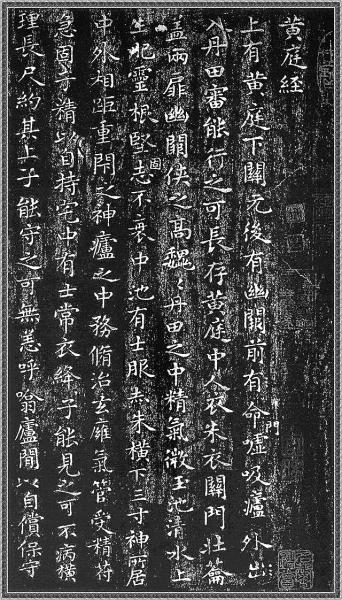 黄庭経
上有黄庭下關元後有幽闕前有命門噓吸廬外出
入丹田審能行之可長存黄庭中人衣朱衣關門壯籥
盖兩扉幽闕俠之高魏〻丹田之中精氣微玉池清水上
生肥靈根堅固志不衰中池有士服赤朱横下三寸神所居
中外相距重閇之神廬之中務脩治玄廱氣管受精符
急固子精以自持宅中有士常衣絳子能見之可不病横
理長尺約其上子能守之可無恙呼噏廬間以自償保守